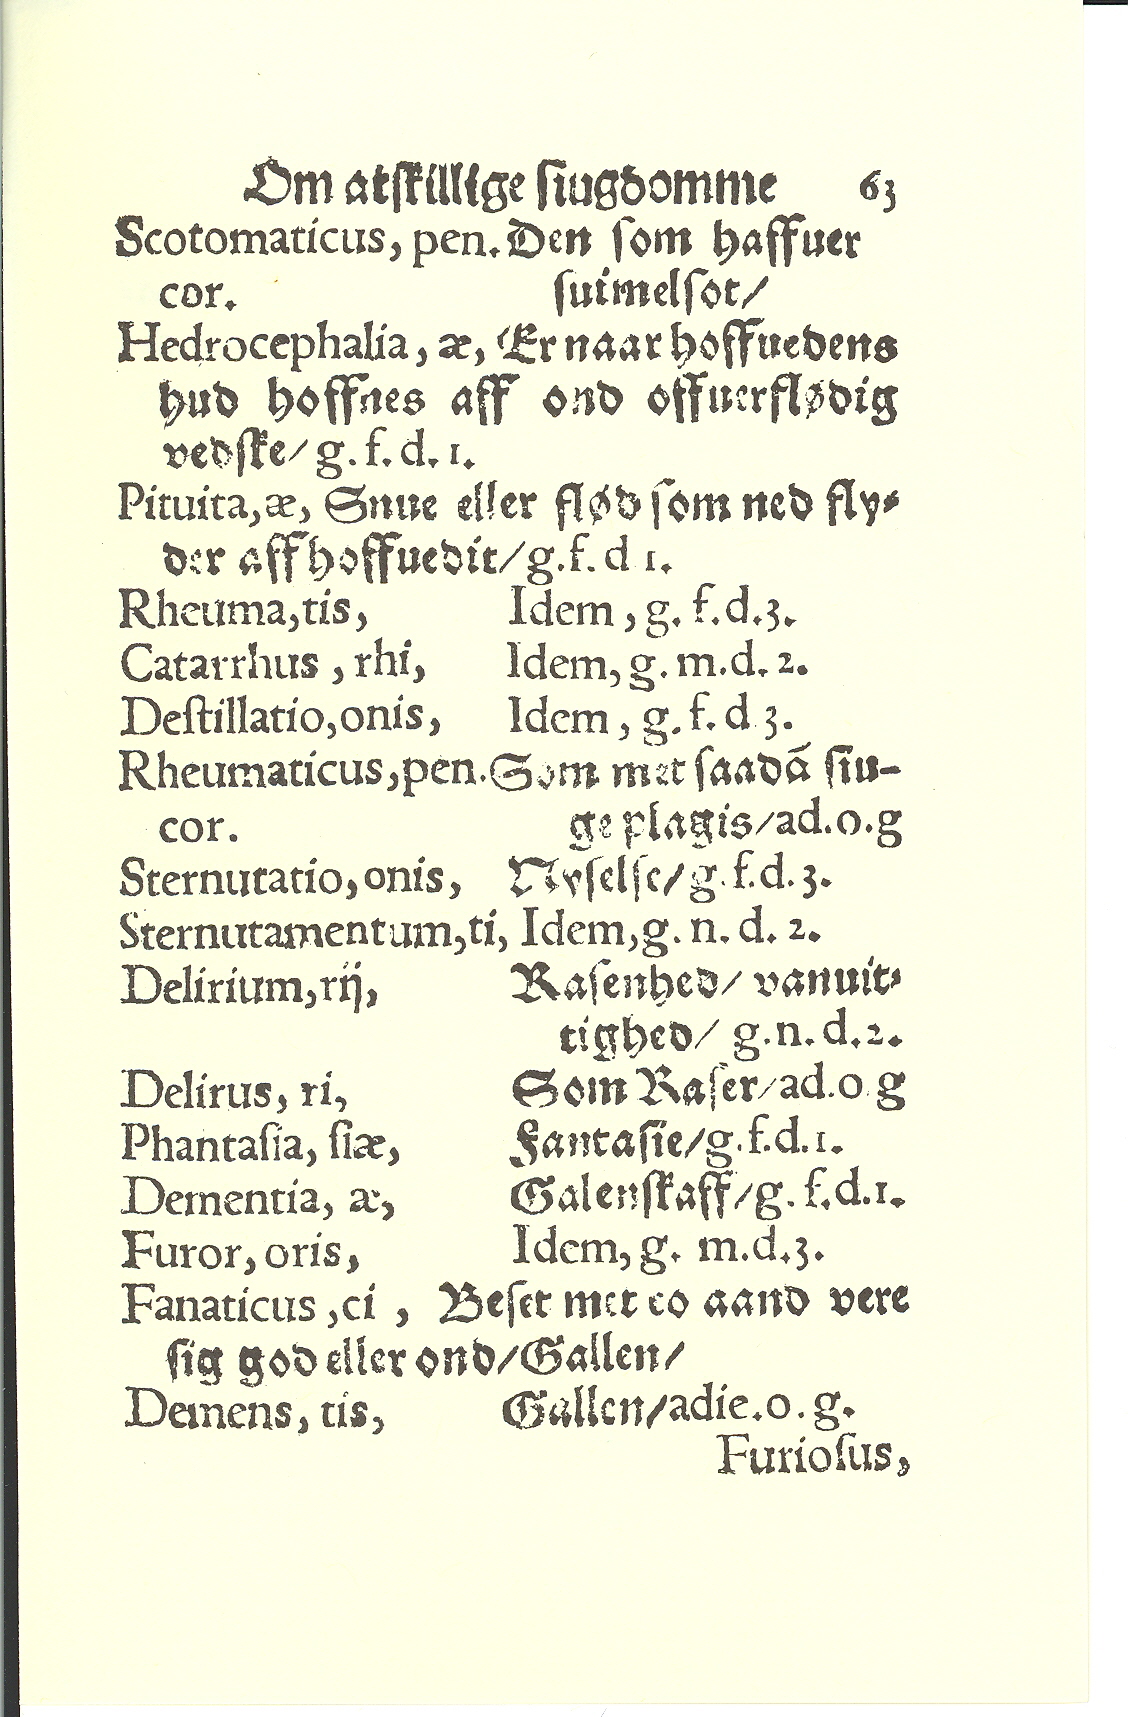 Om atſkillige ſiugdomme 63
Scotomaticus, pen. Den ſom haffuer
cor. ſuimelſot/
Hedrocephalia, æ, Er naar hoffuedens
hud hoffnes aff ond offuerflødig
vedſke/ g. f. d. 1.
Pituita, æ, Snue eller flød ſom ned fly⸗
der aff hoffuedit/ g. f. d 1.
Rheuma, tis, Idem, g. f. d. 3.
Catarrhus, rhi, Idem, g. m. d. 2.
Deſtillatio, onis, Idem, g. f. d 3.
Rheumaticus, pen. Som met ſaadã ſiu-
cor. ge plagis/ ad. o. g
Sternutatio, onis, Nyſelſe/ g. f. d. 3.
Sternutamentum, ti, Idem, g. n. d. 2.
Delirium, rij, Raſenhed/ vanuit⸗
tighed/ g. n. d. 2.
Delirus, ri, Som Raſer/ ad. o g
Phantaſia, ſiæ, Fantaſie/ g. f. d. 1.
Dementia, æ, Galenſkaff/ g. f. d. 1.
Furor, oris, Idem, g. m. d. 3.
Fanaticus, ci, Beſet met eo aand vere
ſig god eller ond/ Gallen/
Demens, tis, Gallen/ adie. o. g.
Furioſus,